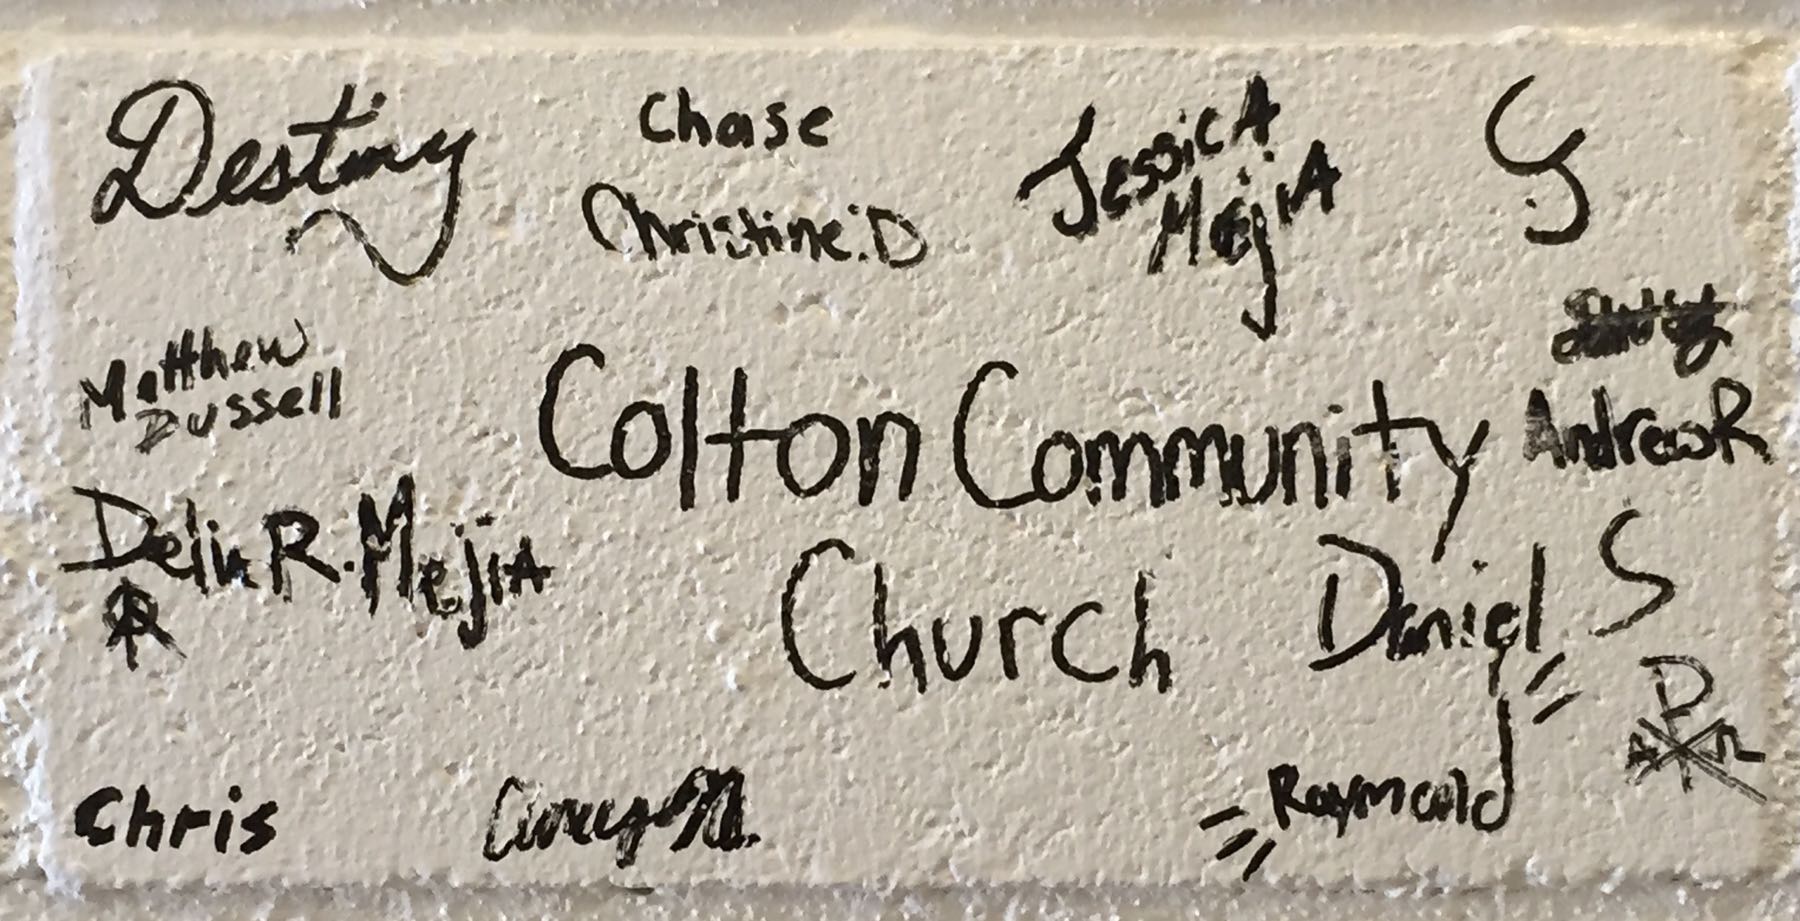 Destiny
Chase
Christine.D
JessicA
MejiA
Matthew
Dussell
Colton Community
Church
AndrewR
Delia R. MejiA
Daniel S
P
A Ω
Chris
Raymond